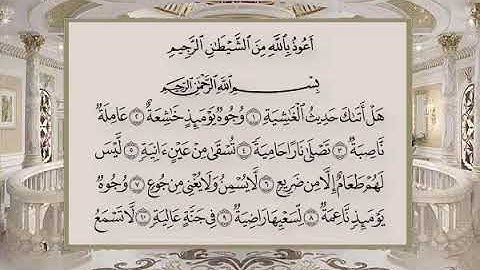 أَعُوذُ بِاللَّهِ مِنَ الشَّيْطَٰنِ الرَّجِيمِ
بِسْمِ اللَّهِ الرَّحْمَٰنِ الرَّحِيمِ
هَلْ أَتَىٰكَ حَدِيثُ الْغَٰشِيَةِ ١ وُجُوهٌ يَوْمَئِذٍ خَٰشِعَةٌ ٢ عَامِلَةٌ
نَّاصِبَةٌ ٣ تَصْلَىٰ نَارًا حَامِيَةً ٤ تُسْقَىٰ مِنْ عَيْنٍ ءَانِيَةٍ ٥ لَّيْسَ
لَهُمْ طَعَامٌ إِلَّا مِن ضَرِيعٍ ٦ لَّا يُسْمِنُ وَلَا يُغْنِى مِن جُوعٍ ٧ وُجُوهٌ
يَوْمَئِذٍ نَّاعِمَةٌ ٨ لِّسَعْيِهَا رَاضِيَةٌ ٩ فِى جَنَّةٍ عَالِيَةٍ ١٠ لَّا تَسْمَعُ